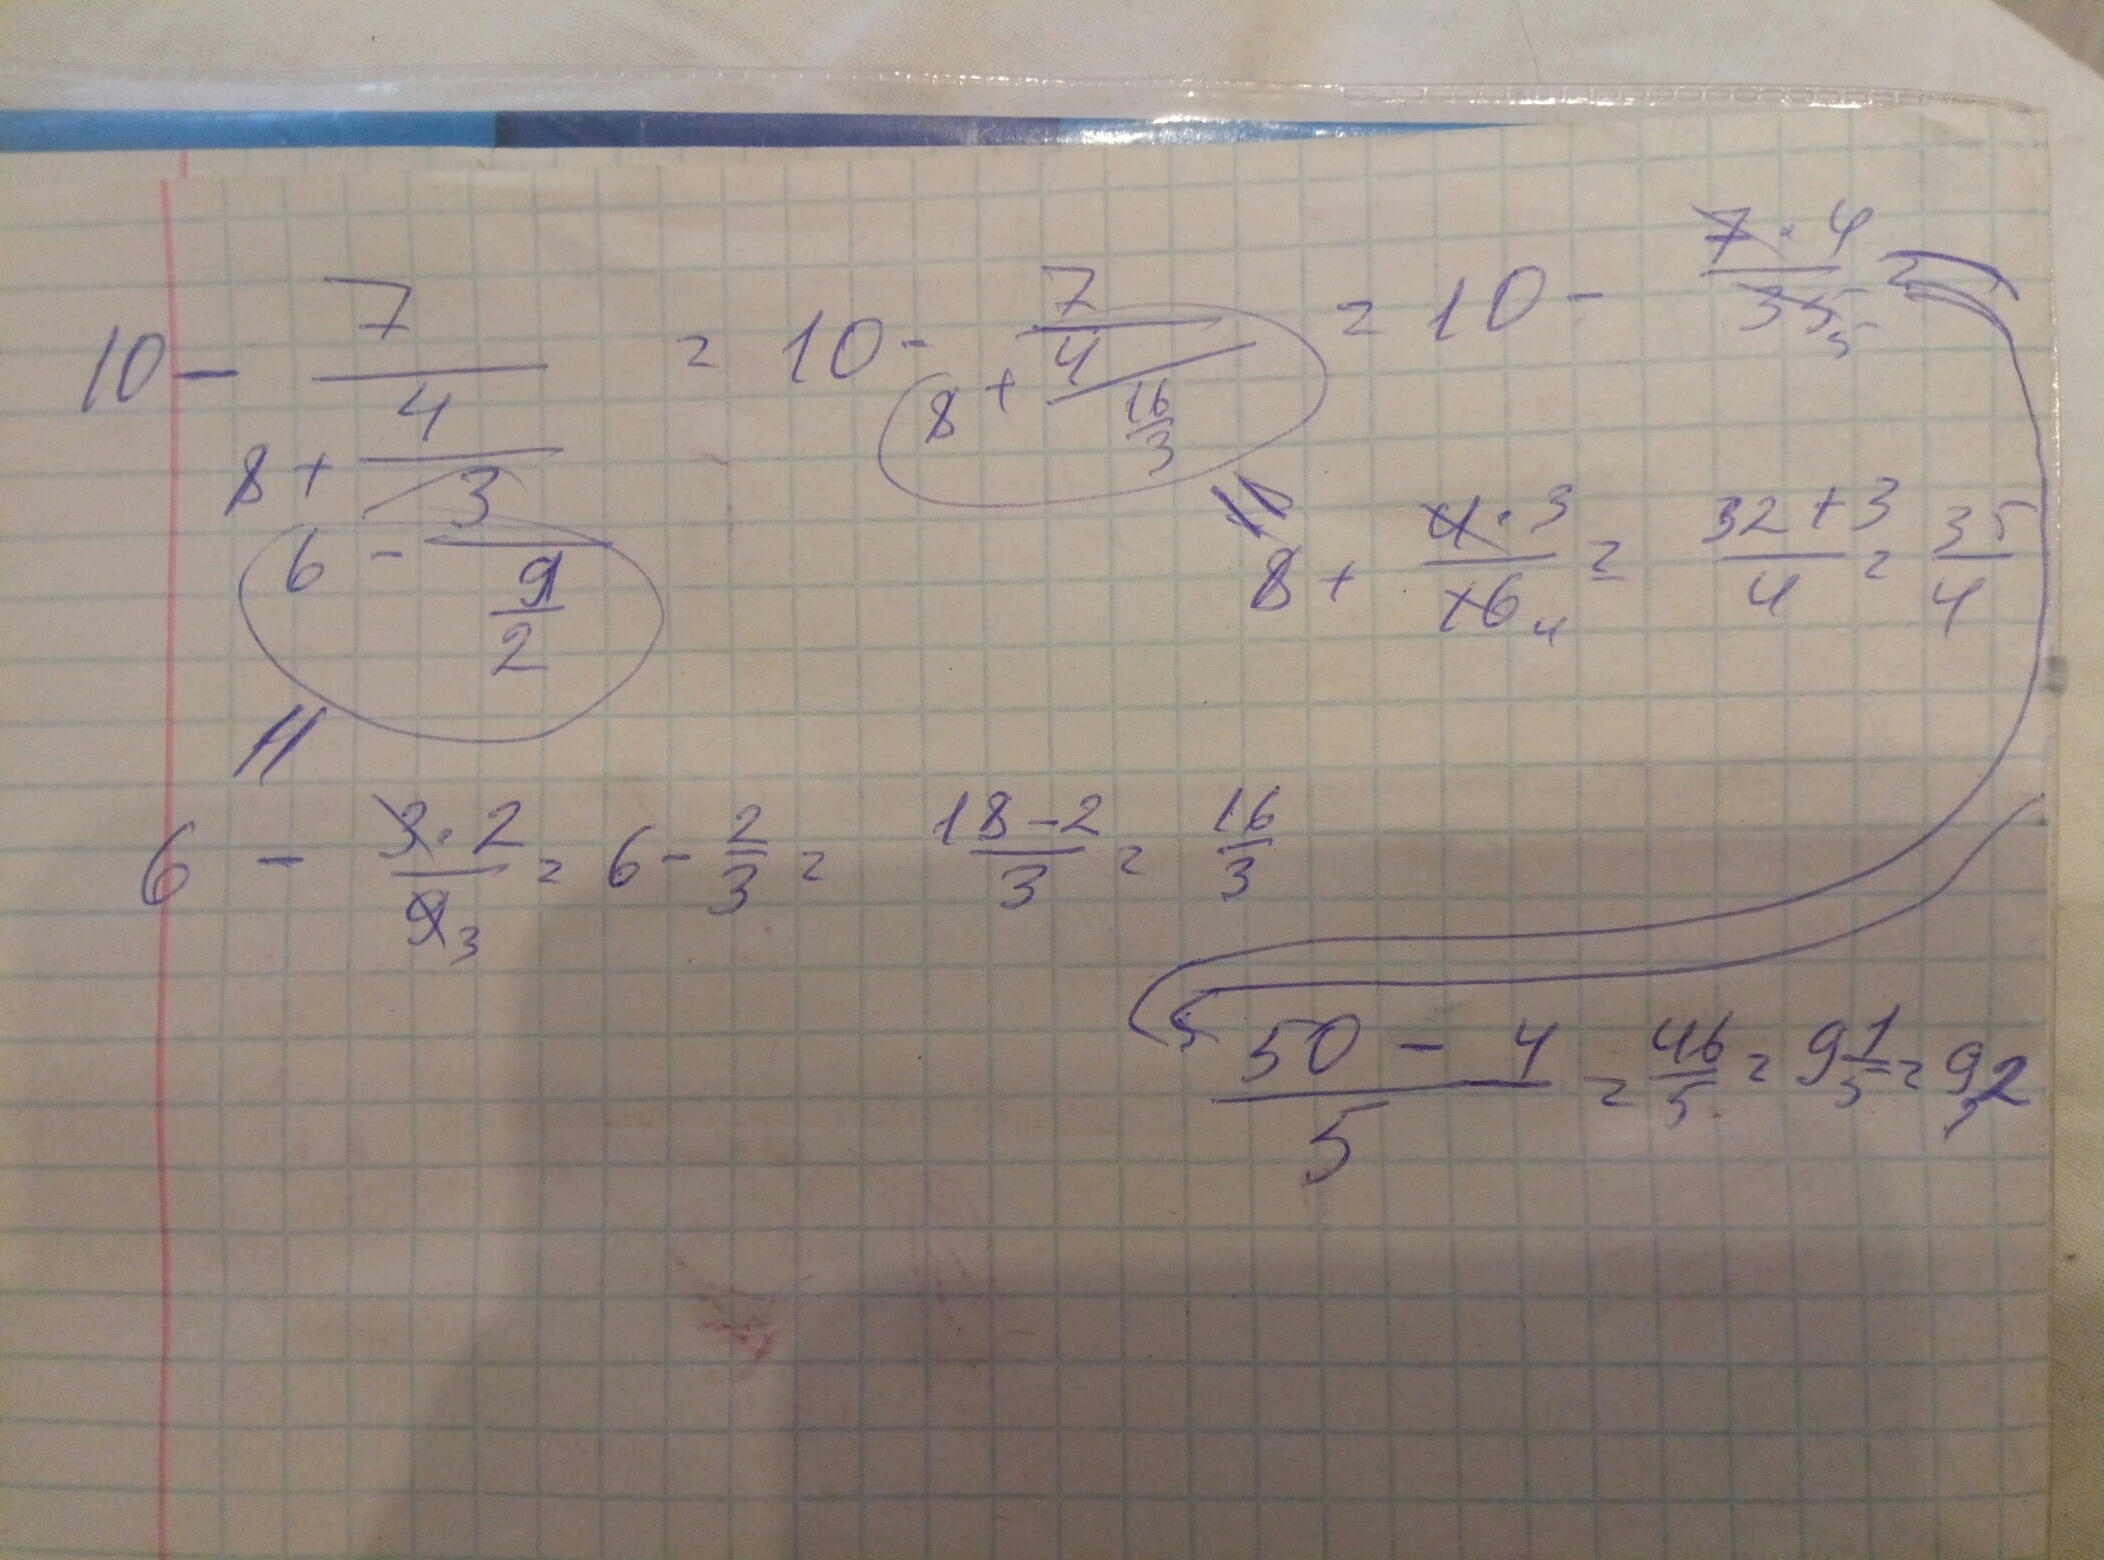 10 - 7/(8 + 4/(6 - 3/(9/2))) = 10 - 7/(8 + 4/(16/3)) = 10 - 7·4/35 5 =
8 + 4·3/16 4 = 32+3/4 = 35/4
6 - 3·2/9 3 = 6 - 2/3 = 18-2/3 = 16/3
50 - 4/5 = 46/5 = 9 1/5 = 9,2